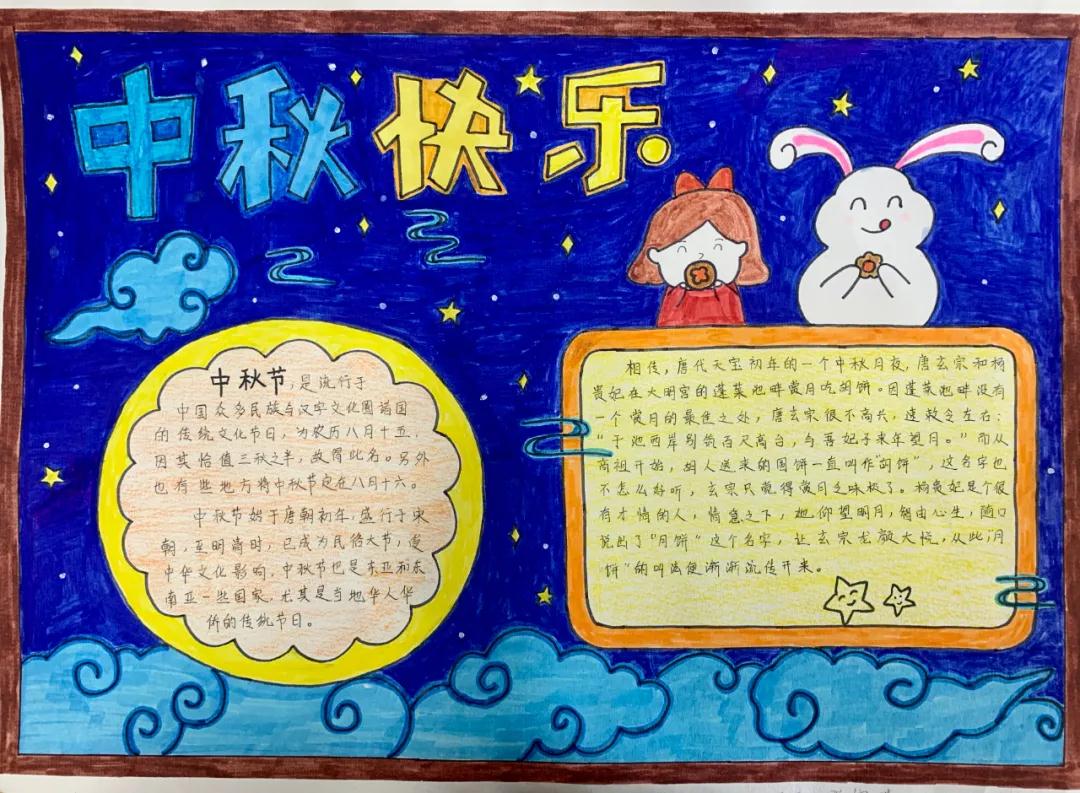 中秋快乐
中秋节,是流行于
中国众多民族与汉字文化圈诸国
的传统文化节日,为农历八月十五,
因其恰值三秋之半,故得此名。另外
也有些地方将中秋节定在八月十六。
中秋节始于唐朝初年,盛行于宋
朝,至明清时,已成为民俗大节,受
中华文化影响,中秋节也是东亚和东
南亚一些国家,尤其是当地华人华
侨的传统节日。
相传,唐代天宝初年的一个中秋月夜,唐玄宗和杨
贵妃在大明宫的蓬莱池畔赏月吃胡饼。因蓬莱池畔没有
一个赏月的最佳之处,唐玄宗很不高兴,遂敕令左右:
“于池西岸别筑百尺高台,与吾妃子来年望月。”而从
高祖开始,胡人送来的圆饼一直叫作“胡饼”,这名字也
不怎么好听,玄宗只觉得赏月乏味极了。杨贵妃是个很
有才情的人,情急之下,她仰望明月,智由心生,随口
说出了“月饼”这个名字,让玄宗龙颜大悦,从此“月
饼”的叫法便渐渐流传开来。